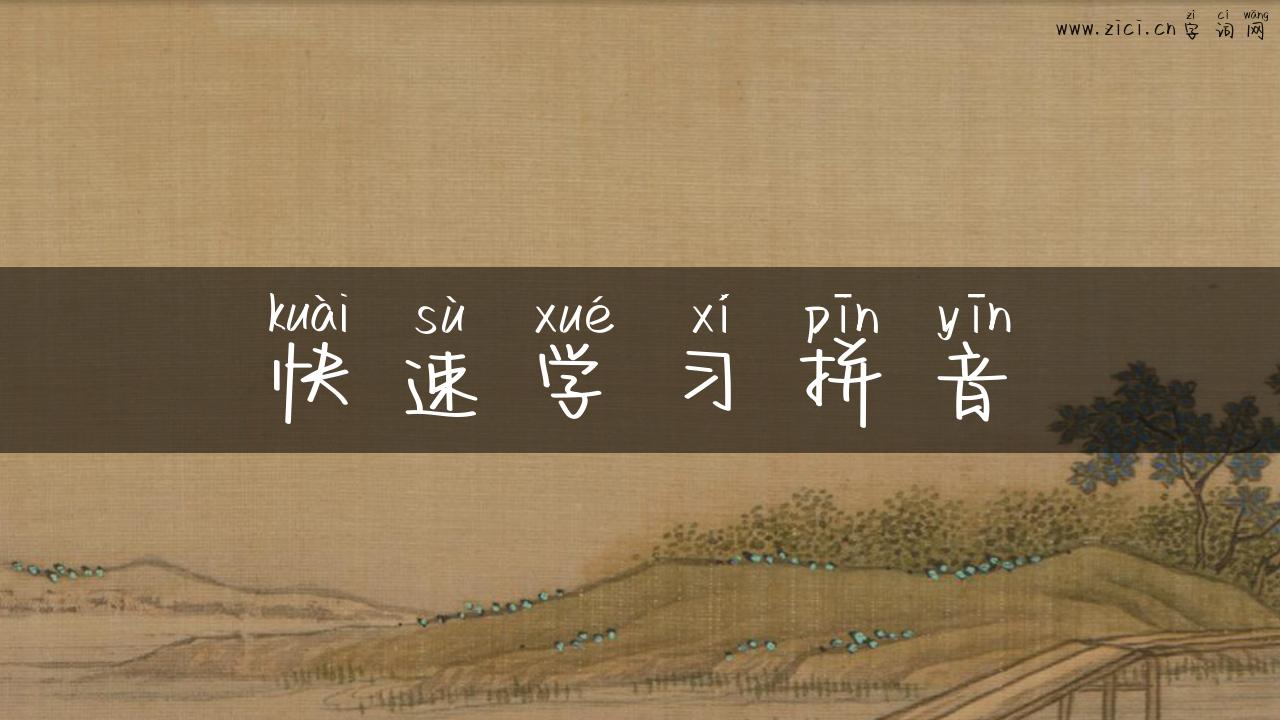 zì cí wǎng
www.zici.cn 字词网
kuài sù xué xí pīn yīn
快速学习拼音